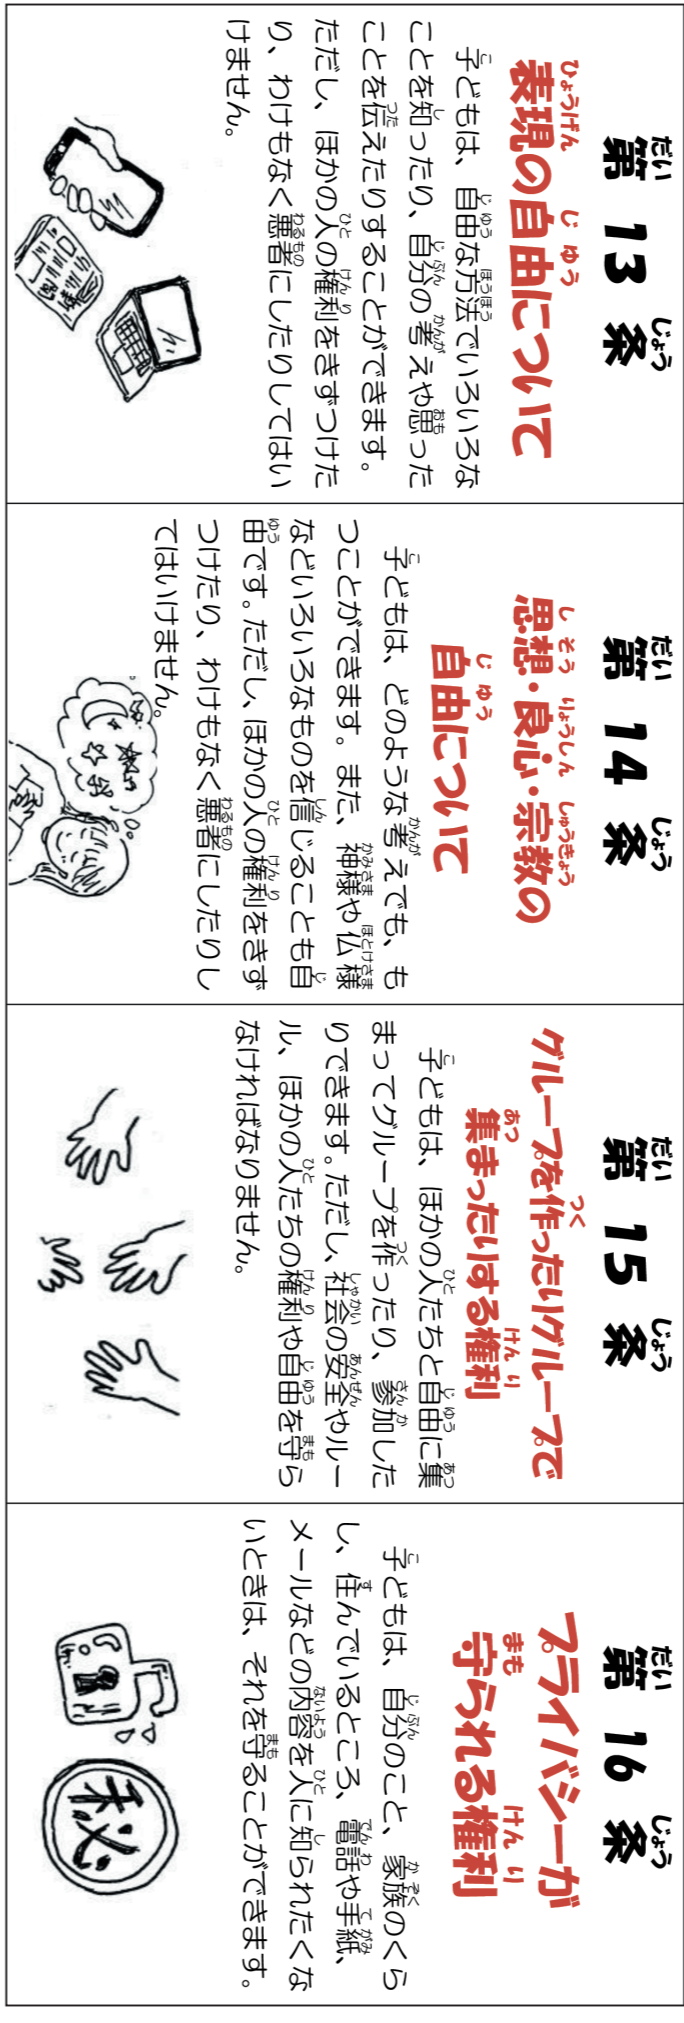 第 13 条
表現の自由について
子どもは、自由な方法でいろいろな
ことを知ったり、自分の考えや思った
ことを伝えたりすることができます。
ただし、ほかの人の権利をきずつけた
り、わけもなく悪者にしたりしてはい
けません。
第 14 条
思想・良心・宗教の
自由について
子どもは、どのような考えでも、も
つことができます。また、神様や仏様
などいろいろなものを信じることも自
由です。ただし、ほかの人の権利をきず
つけたり、わけもなく悪者にしたりし
てはいけません。
第 15 条
グループを作ったりグループで
集まったりする権利
子どもは、ほかの人たちと自由に集
まってグループを作ったり、参加した
りできます。ただし、社会の安全やルー
ル、ほかの人たちの権利や自由を守ら
なければなりません。
第 16 条
プライバシーが
守られる権利
子どもは、自分のこと、家族のくら
し、住んでいるところ、電話や手紙、
メールなどの内容を人に知られたくな
いときは、それを守ることができます。
秘